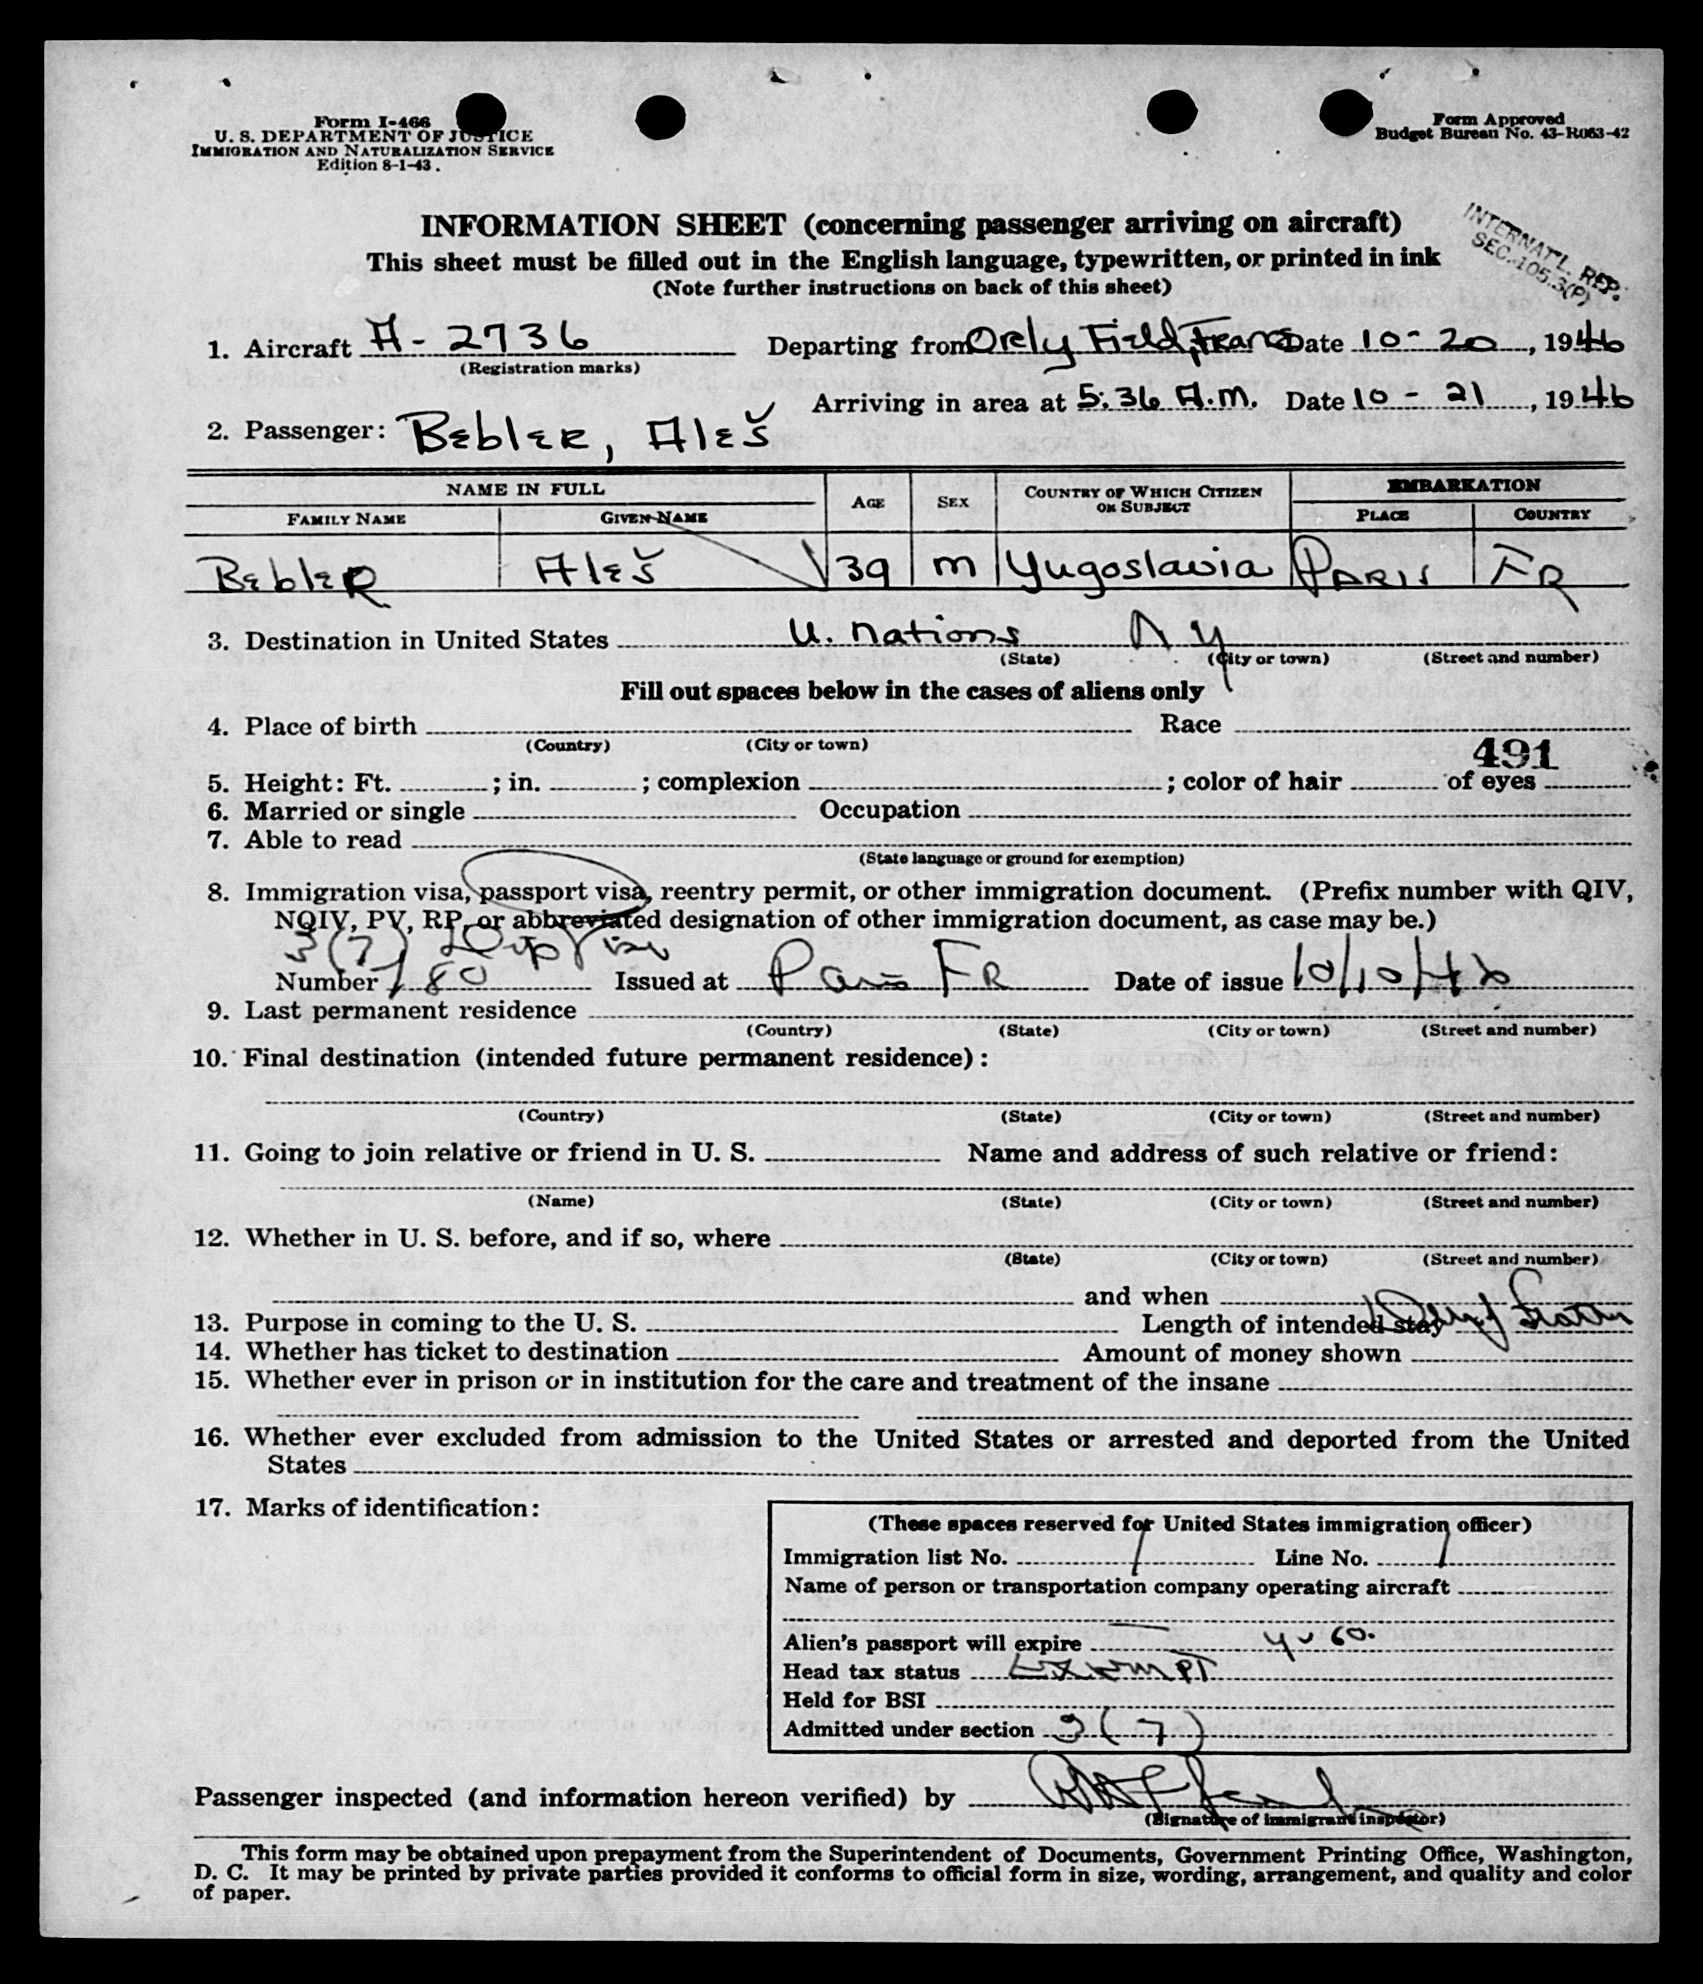 Form I-466
U. S. DEPARTMENT OF JUSTICE
IMMIGRATION AND NATURALIZATION SERVICE
Edition 8-1-43.
Form Approved
Budget Bureau No. 43-R063-42
INTERNAT'L. REP.
SEC. 105.3(P)
INFORMATION SHEET (concerning passenger arriving on aircraft)
This sheet must be filled out in the English language, typewritten, or printed in ink
(Note further instructions on back of this sheet)
1. Aircraft A-2736 Departing from Orely Field, France Date 10-20, 1946
(Registration marks)
Arriving in area at 5:36 A.M. Date 10-21, 1946
2. Passenger: Bebler, Aleš
NAME IN FULL AGE SEX COUNTRY OF WHICH CITIZEN OR SUBJECT EMBARKATION
FAMILY NAME GIVEN NAME PLACE COUNTRY
Bebler Aleš 39 m Yugoslavia Paris FR
3. Destination in United States U. Nations N Y
(State) (City or town) (Street and number)
Fill out spaces below in the cases of aliens only
4. Place of birth Race
(Country) (City or town)
491
5. Height: Ft. ; in. ; complexion ; color of hair of eyes
6. Married or single Occupation
7. Able to read
(State language or ground for exemption)
8. Immigration visa, passport visa, reentry permit, or other immigration document. (Prefix number with QIV,
NQIV, PV, RP, or abbreviated designation of other immigration document, as case may be.)
3(7) Dip Visa
Number 180 Issued at Paris FR Date of issue 10/10/46
9. Last permanent residence
(Country) (State) (City or town) (Street and number)
10. Final destination (intended future permanent residence):
(Country) (State) (City or town) (Street and number)
11. Going to join relative or friend in U. S. Name and address of such relative or friend:
(Name) (State) (City or town) (Street and number)
12. Whether in U. S. before, and if so, where
(State) (City or town) (Street and number)
and when
13. Purpose in coming to the U. S. Length of intended stay
14. Whether has ticket to destination Amount of money shown
15. Whether ever in prison or in institution for the care and treatment of the insane
16. Whether ever excluded from admission to the United States or arrested and deported from the United
States
17. Marks of identification:
(These spaces reserved for United States immigration officer)
Immigration list No. 1 Line No. 1
Name of person or transportation company operating aircraft
Alien's passport will expire
Head tax status Exempt
Held for BSI
Admitted under section 3(7)
Passenger inspected (and information hereon verified) by
(Signature of immigrant inspector)
This form may be obtained upon prepayment from the Superintendent of Documents, Government Printing Office, Washington,
D. C. It may be printed by private parties provided it conforms to official form in size, wording, arrangement, and quality and color
of paper.